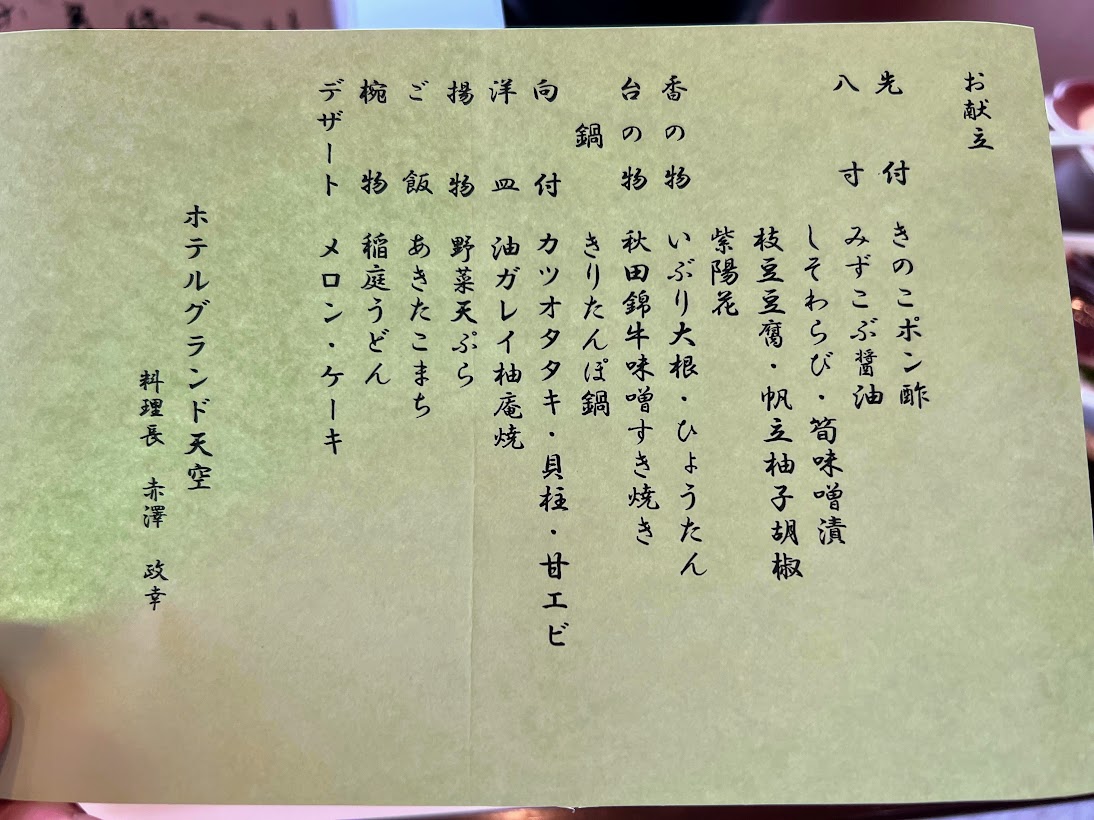 お献立
先付 きのこポン酢
八寸 みずこぶ醤油
しそわらび・筍味噌漬
枝豆豆腐・帆立柚子胡椒
紫陽花
香の物 いぶり大根・ひょうたん
台の物 秋田錦牛味噌すき焼き
鍋 きりたんぽ鍋
向付 カツオタタキ・貝柱・甘エビ
洋皿 油ガレイ柚庵焼
揚物 野菜天ぷら
ご飯 あきたこまち
椀物 稲庭うどん
デザート メロン・ケーキ
ホテルグランド天空
料理長 赤澤 政幸